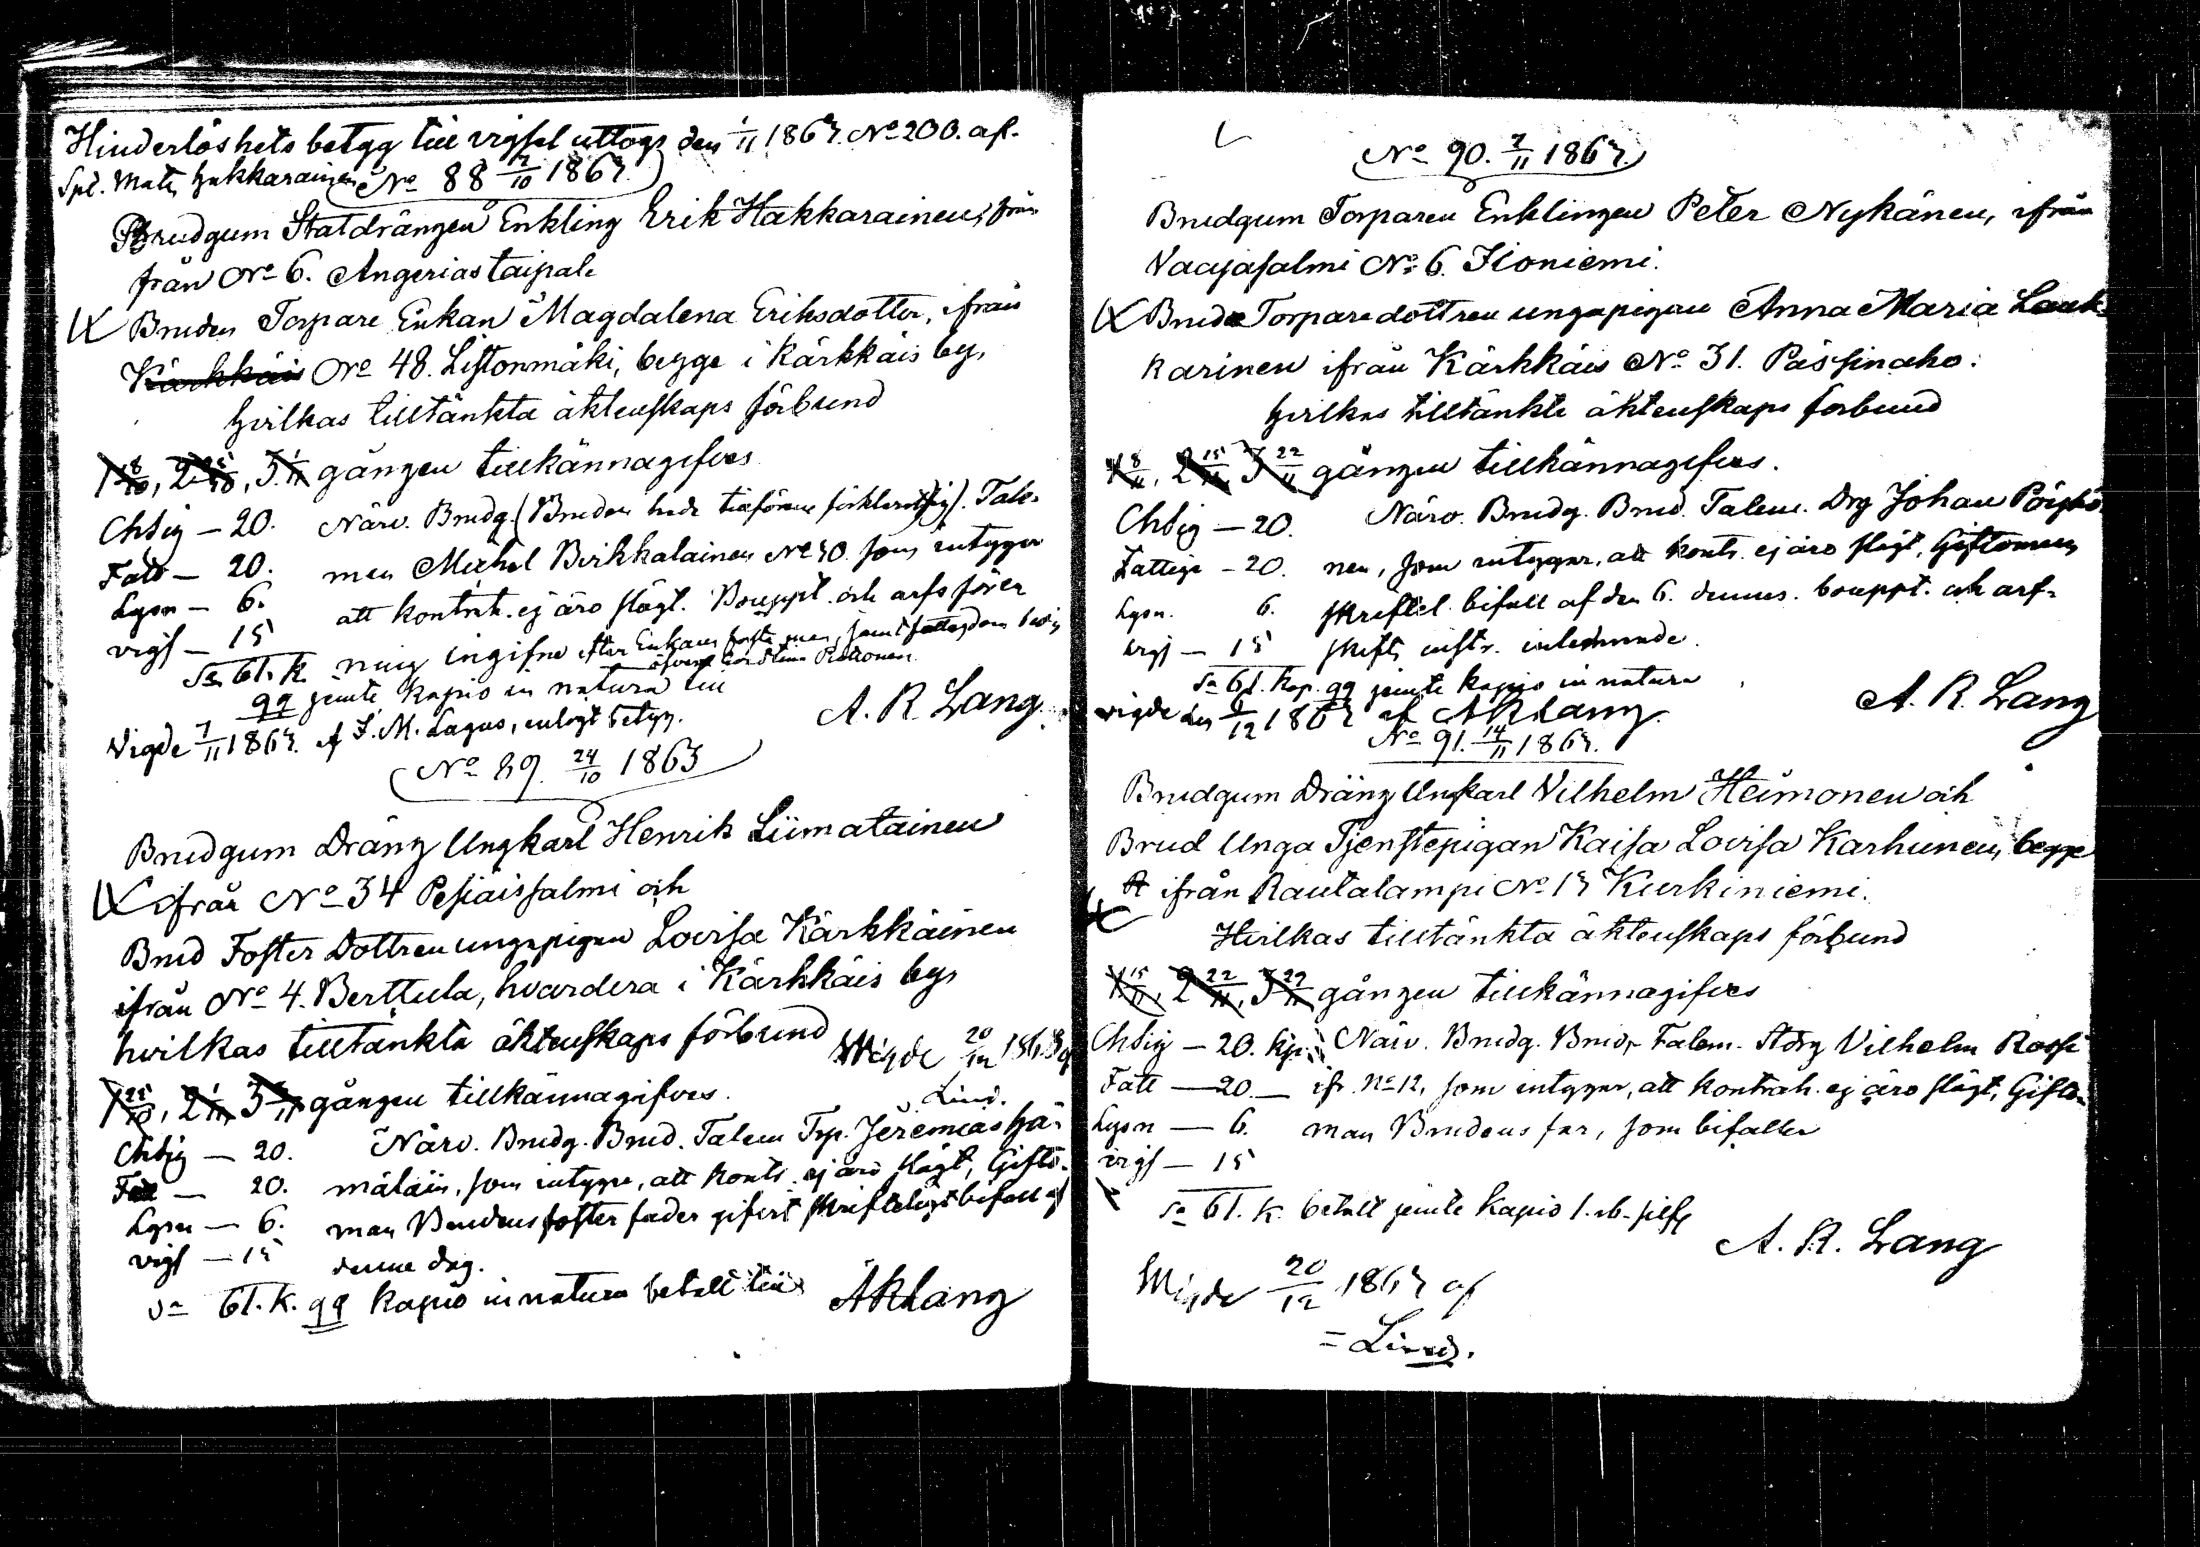 Hinderlöshets betyg till vigsel uttogs den 1/11 1863. No 200. af.
Spl. Mats Hakkarainen
No 88 7/10 1863.
Brudgum Statdrängen Enkling Erik Hakkarainen, från
från No 6. Angeriastaipale
Bruden Torpare Enkan Magdalena Eriksdotter, ifrån
Kärkkäis No 48. Listonmäki, begge i Kärkkäis by,
hvilkas tilltänkta äktenskaps förbund
1 18/10, 2 25/10, 3 1/11 gången tillkännagifves
Chsig — 20. Närv. Brudg. (Bruden hade förklarat sig). Tales-
Fatt — 20. man Michel Pirkkalainen No 40. som intygar
Lysn — 6. att kontrah. ej äro slägt. Bouppt. och arfsföre-
vigs — 15 ning ingifne efter Enkans man, samt
Sa 61. k. äfvensom Protionen.
qq jemte kapio in natura till
Vigde 7/11 1863. af J. M. Lagus, enligt betyg.
A. R. Lang
No 89. 24/10 1863
Brudgum Dräng Ungkarl Henrik Liimatainen
ifrån No 34 Pesiäissalmi och
Brud Foster Dottren ungapigan Lovisa Kärkkäinen
ifrån No 4. Berttula, hvardera i Kärkkäis by,
hvilkas tilltänkta äktenskaps förbund
Wigde 20/12 1863 af
Lind.
1 25/10, 2 1/11 3 8/11 gången tillkännagifves.
Chsig — 20. Närv. Brudg. Brud. Talem Trp. Jeremias Hä-
Fatt — 20. mäläin, som intygar, att kontr. ej äro slägt, Gifto-
Lysn — 6. man Brudens foster fader gifvit skriftligt bifall af
vigs — 15 denne dag.
Sa 61. k. qq kapio in natura betalt till
ARLang
No 90. 7/11 1863.
Brudgum Torparen Enklingen Peter Nykänen, ifrån
Vaajasalmi No 6. Kioniemi.
Brud Torparedottren ungapigan Anna Maria Lauk-
karinen ifrån Kärkkäis No 31. Pässinaho.
hvilkas tilltänkte äktenskaps forbund
1 8/11, 2 15/11 3 22/11 gången tillkännagifves.
Chsig — 20. Närv. Brudg. Brud. Talem. Drg Johan Pöyhö-
Fattige — 20. nen, som intygar, att kontr. ej äro slägt, Giftoman
Lysn. 6. skriftel. bifall af den 6. dennes. bouppt. och arf-
vigs — 15 skifts instr. inlemnade.
Sa 61. kop. qq jemte kapio in natura
A. R. Lang
vigde den 6/12 1863 af ARLang.
No 91. 14/11 1863.
Brudgum Dräng Ungkarl Vilhelm Heimonen och
Brud Unga Tjenstepigan Kaisa Lovisa Karhunen, begge
ifrån Rautalampi No 13 Kurkiniemi.
Hvilkas tilltänkta äktenskaps förbund
1 15/11, 2 22/11, 3 29/11 gången tillkännagifves
Chsig — 20. kp. Närv. Brudg. Brud. Talem. Vilhelm Rossi
Fatt — 20 — ifr. No 12, som intygar, att kontrah. ej äro slägt, Gifto-
Lysn — 6. man Brudens far, som bifaller
vigs — 15
Sa 61. k. betalt jemte kapio 1. rb. silf
A. R. Lang
Wigde 20/12 1863 af
= Lind.